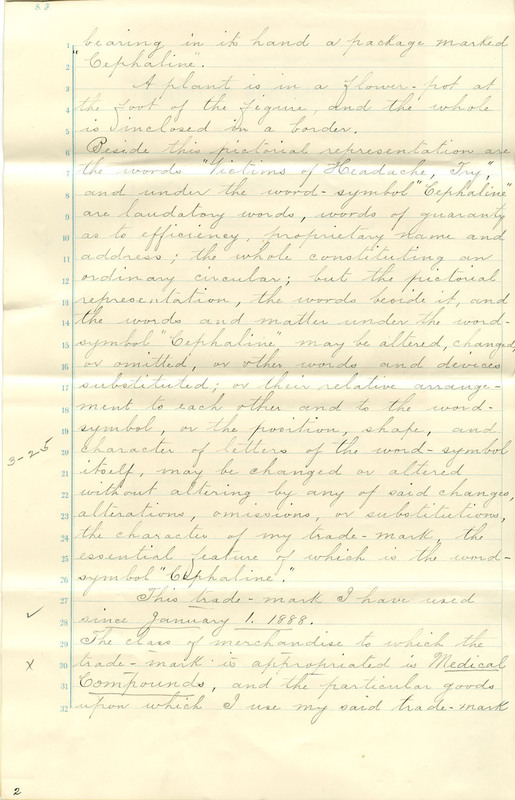 1 bearing in its hand a package marked
2 "Cephaline".
3 A plant is in a flower-pot at
4 the foot of the figure, and the whole
5 is inclosed in a border.
6 Beside this pictorial representation are
7 the words "Victims of Headache, Try",
8 and under the word-symbol "Cephaline"
9 are laudatory words, words of guaranty
10 as to efficiency, proprietary name and
11 address; the whole constituting an
12 ordinary circular; but the pictorial
13 representation, the words beside it, and
14 the words and matter under the word-
15 symbol "Cephaline" may be altered, changed,
16 or omitted, or other words and devices
17 substituted; or their relative arrange-
18 ment to each other and to the word-
19 symbol, or the position, shape, and
20 character of letters of the word-symbol
21 itself, may be changed or altered
22 without altering by any of said changes,
23 alterations, omissions, or substitutions,
24 the character of my trade-mark, the
25 essential feature of which is the word-
26 symbol "Cephaline".
27 This trade-mark I have used
28 since January 1. 1888.
29 The class of merchandise to which the
30 trade-mark is appropriated is Medical
31 Compounds, and the particular goods
32 upon which I use my said trade-mark
3-25
✓
x
2